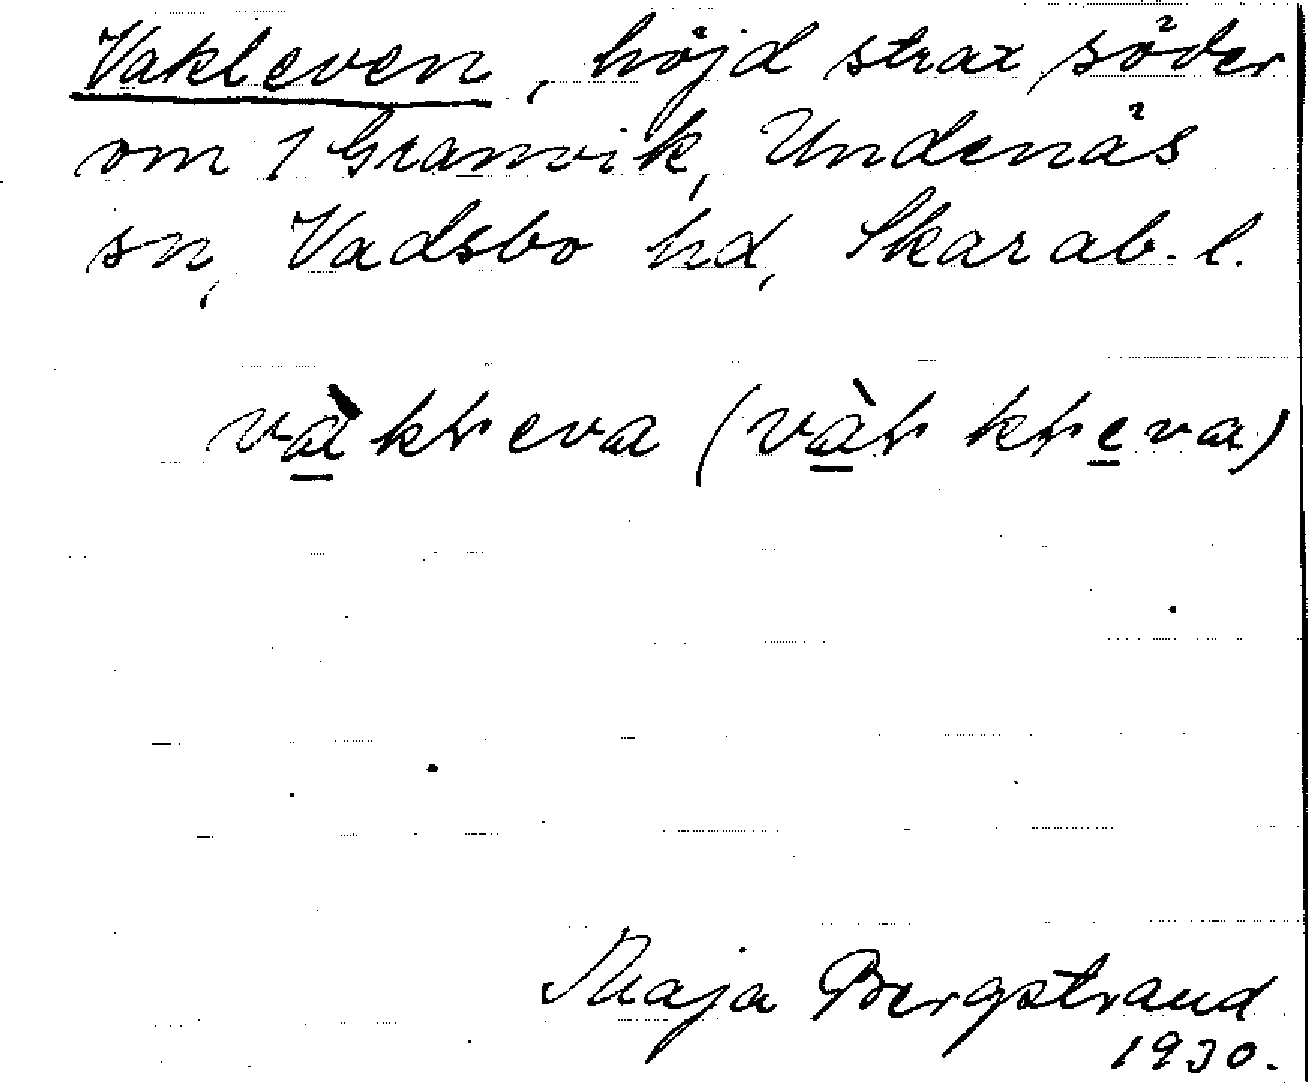 Vakleven, höjd strax söder
om 1 Granvik, Undenäs
sn, Vadsbo hd, Skarab. l.
Maja Bergstrand
1930.